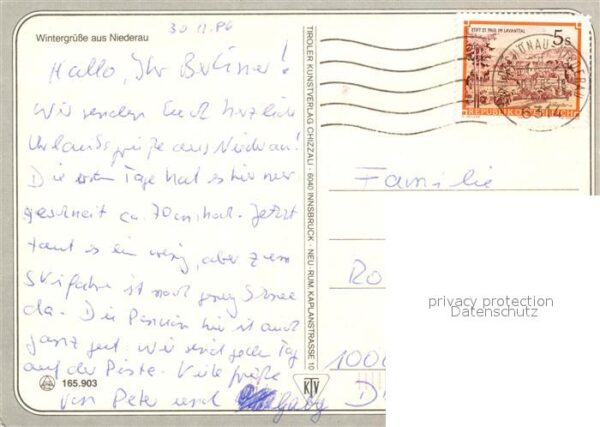 Wintergrüße aus Niederau
30.12.86
Hallo, Ihr Berliner!
Wir senden Euch herzliche
Urlaubsgrüße aus Niederau!
Die ersten Tage hat es hier nur
geschneit ca. 70cm hat. Jetzt
taut es ein wenig, aber zum
Skifahren ist noch genug Schnee
da. Die Pension hier ist auch
ganz gut. Wir sind jeden Tag
auf der Piste. Viele Grüße
von Peter und Gaby
165.903
TIROLER KUNSTVERLAG CHIZZALI · 6040 INNSBRUCK · NEU-RUM, KAPLANSTRASSE 10
KTV
STIFT ST. PAUL IM LAVANTTAL
5s
REPUBLIK ÖSTERREICH
6314
Familie
Ro
1000
D
privacy protection
Datenschutz